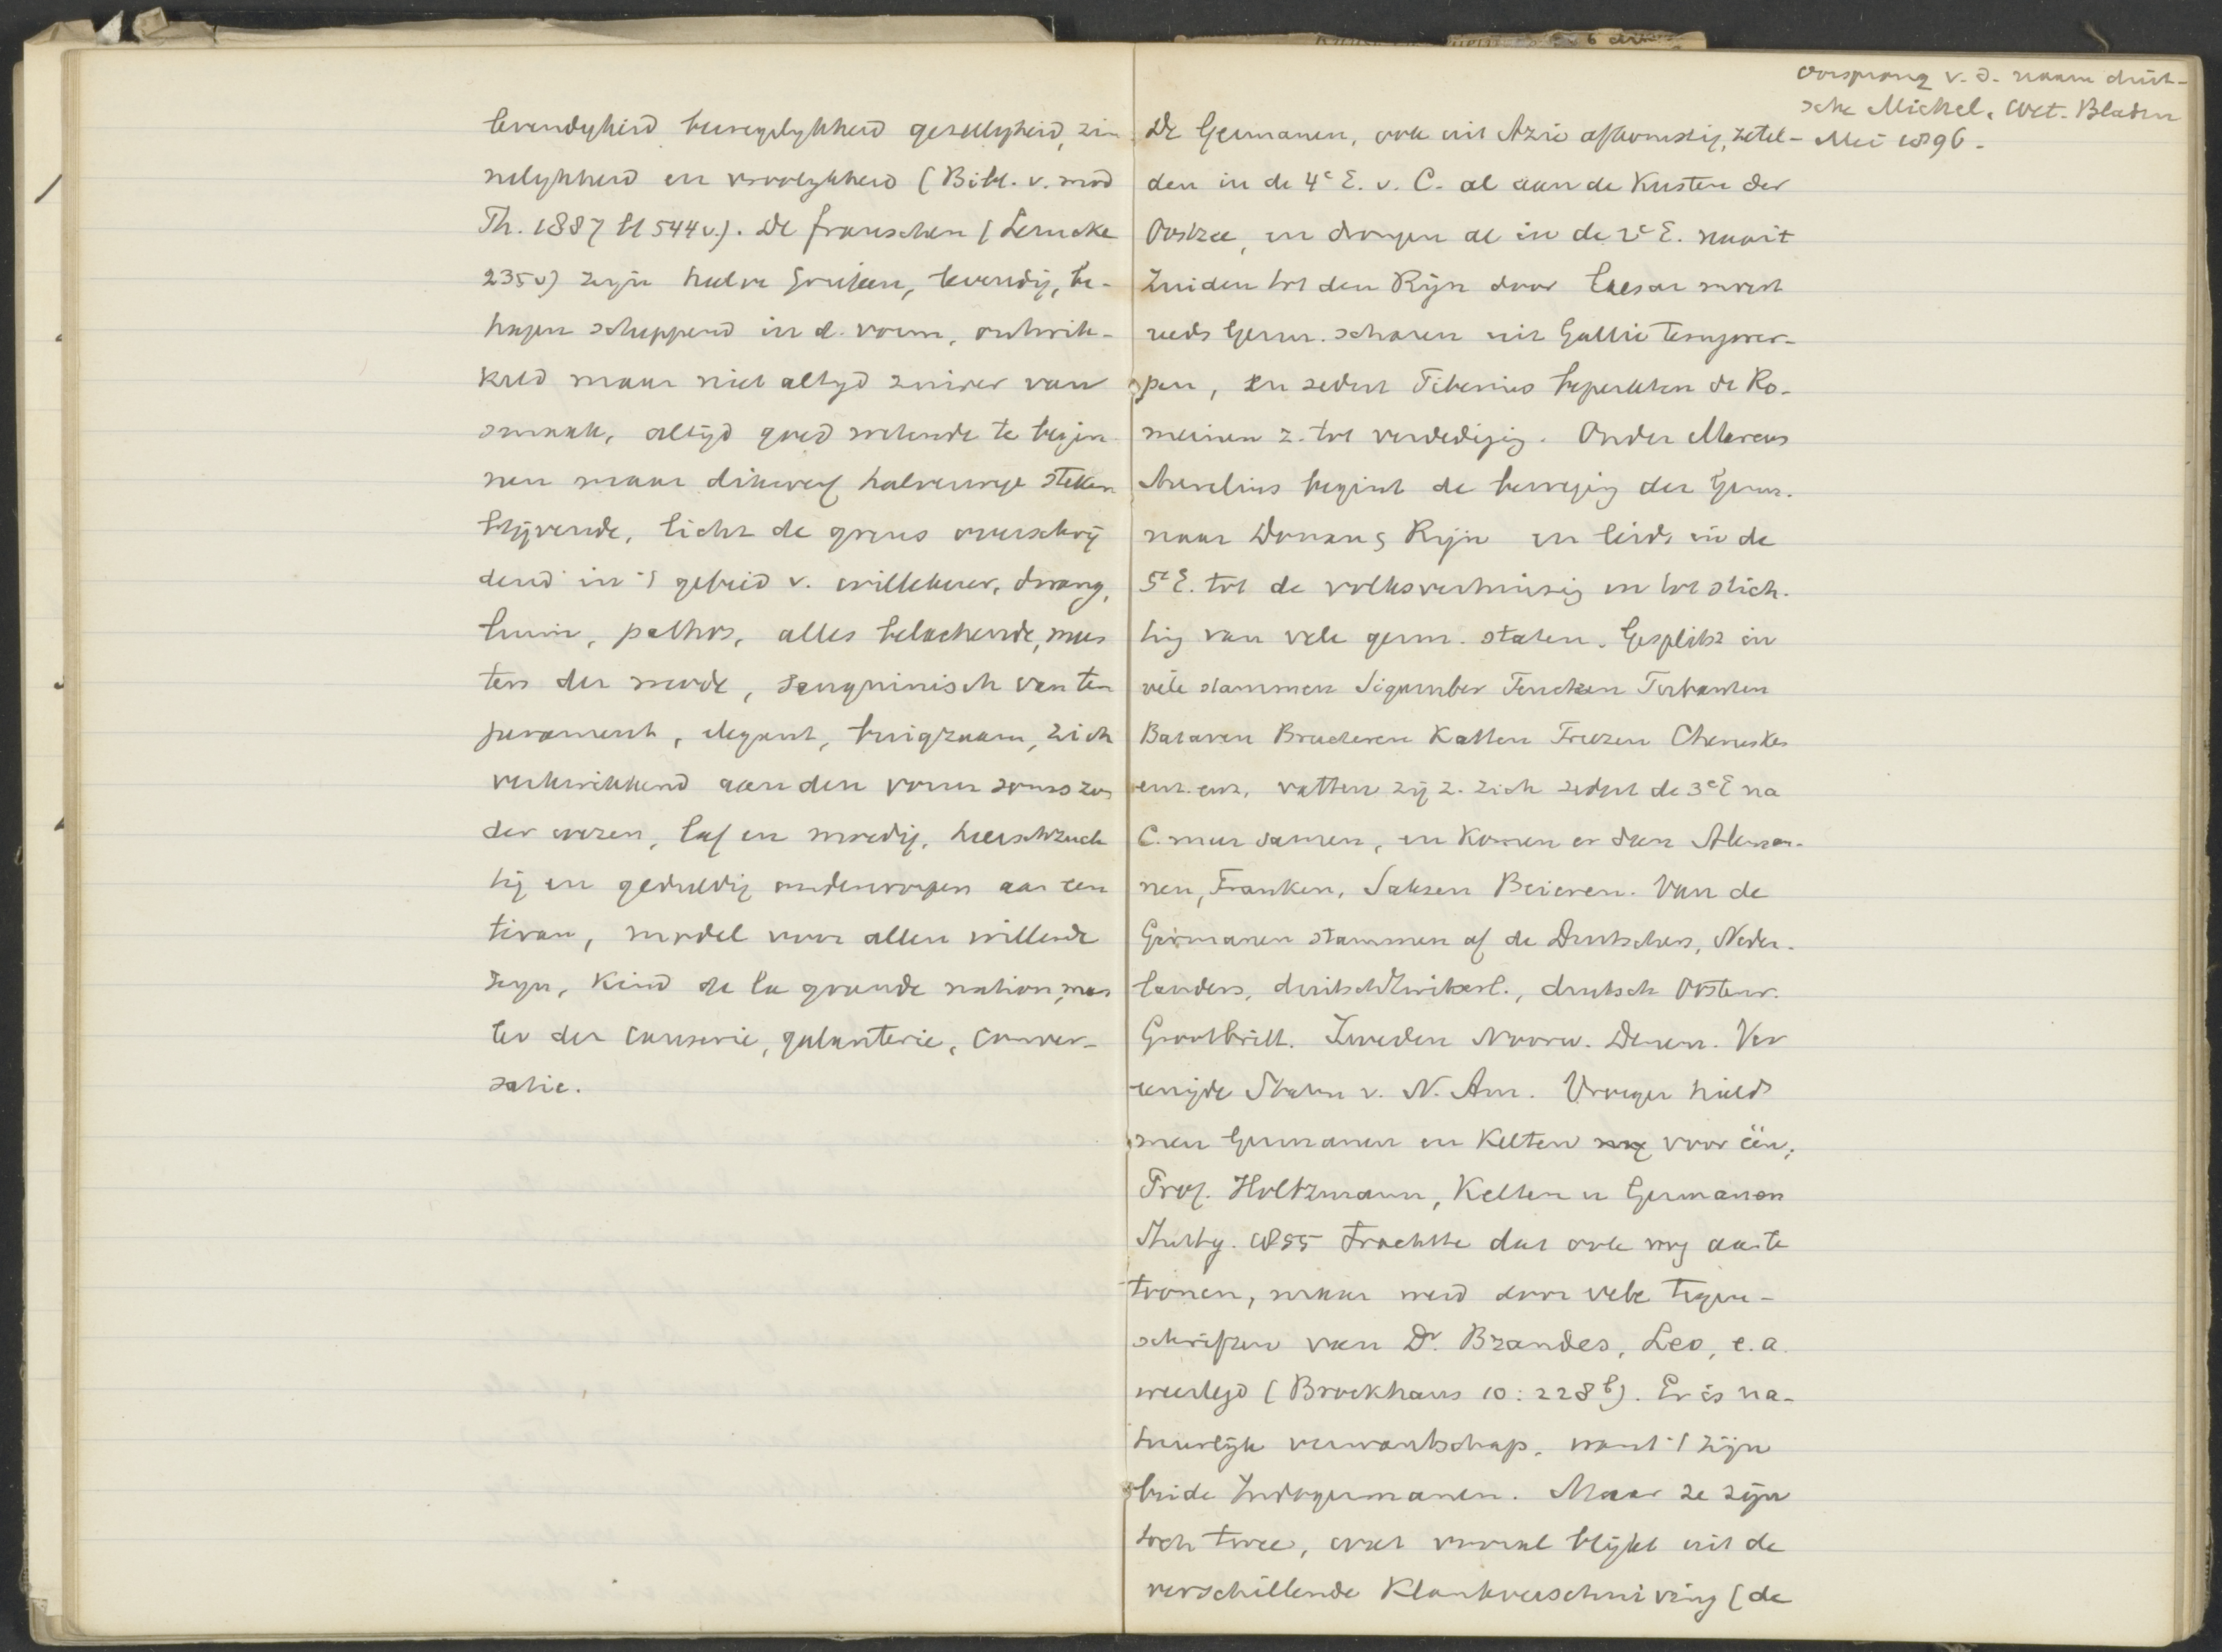 levendigheid beweeglykheid gezelligheid, zin
nelykheid en vroolykheid (Bibl. v. mod
Th. 1887 bl 544v.). De franschen (Lemcke
235v) zyn halve Grieken, levendig, be-
hagen scheppend in d. vorm, ontwik-
keld maar niet altyd zuiver van
smaak, altyd goed wetende te begin
nen maar dikwerf halverwege steken
blijvende, licht de grens overschrij
dend in 't gebied v. willekeur, dwang,
luim, pathos, alles belachende, mees
ters der mode, sanguinisch van tem
perament, elegant, buigzaam, zich
verkwikkend aan den vorm soms zon
der wezen, laf en moedig, heerschzuch
tig en geduldig onderworpen aan een
tiran, model voor allen willende
zyn, Kind de la grande nation, mees
ter der causerie, galanterie, conver-
satie.
oorsprong v. d. naam duit-
sche Michel. Wet. Bladen
Mei 1896.
De Germanen, ook uit Azie afkomstig, zetel-
den in de 4e E. v. C. al aan de Kusten der
Oostzee, en drongen al in de 2e E. naar 't
Zuiden tot den Rijn door Caesar moest
reeds Germ. scharen uit Gallie terugwer-
pen, en sedert Tiberius beperkten de Ro-
meinen z. tot verdediging. Onder Marcus
Aurelius begint de beweging der Germ.
naar Donau & Rijn en leidt in de
5e E. tot de volksverhuizing en tot stich-
ting van vele germ. staten. Gesplitst in
vele stammen Sigamber Tencteren Tubanten
Bataven Bructeren Katten Friezen Cherusker
enz. enz, vatten zij z. zich sedert de 3e E na
C. meer samen, en komen er dan Aleman-
nen, Franken, Saksen Beieren. Van de
Germanen stammen af de Duitschers, Neder-
landers, duitsch Zwitserl., duitsch Oostenr.
Grootbritt. Zweden Noorw. Denem. Ver
eenigde Staten v. N. Am. Vroeger hield
men Germanen en Kelten nog voor één;
Prof. Holtzmann, Kelten u Germanen
Stuttg. 1855 trachtte dat ook nog aan te
toonen, maar werd door vele tegen-
schriften van Dr. Brandes, Leo, e. a.
weerlegd (Brockhaus 10: 228b). Er is na-
tuurlijk verwantschap, want 't zijn
beide Indogermanen. Maar ze zijn
toch twee, wat vooral blijkt uit de
verschillende Klankverschuiving (de